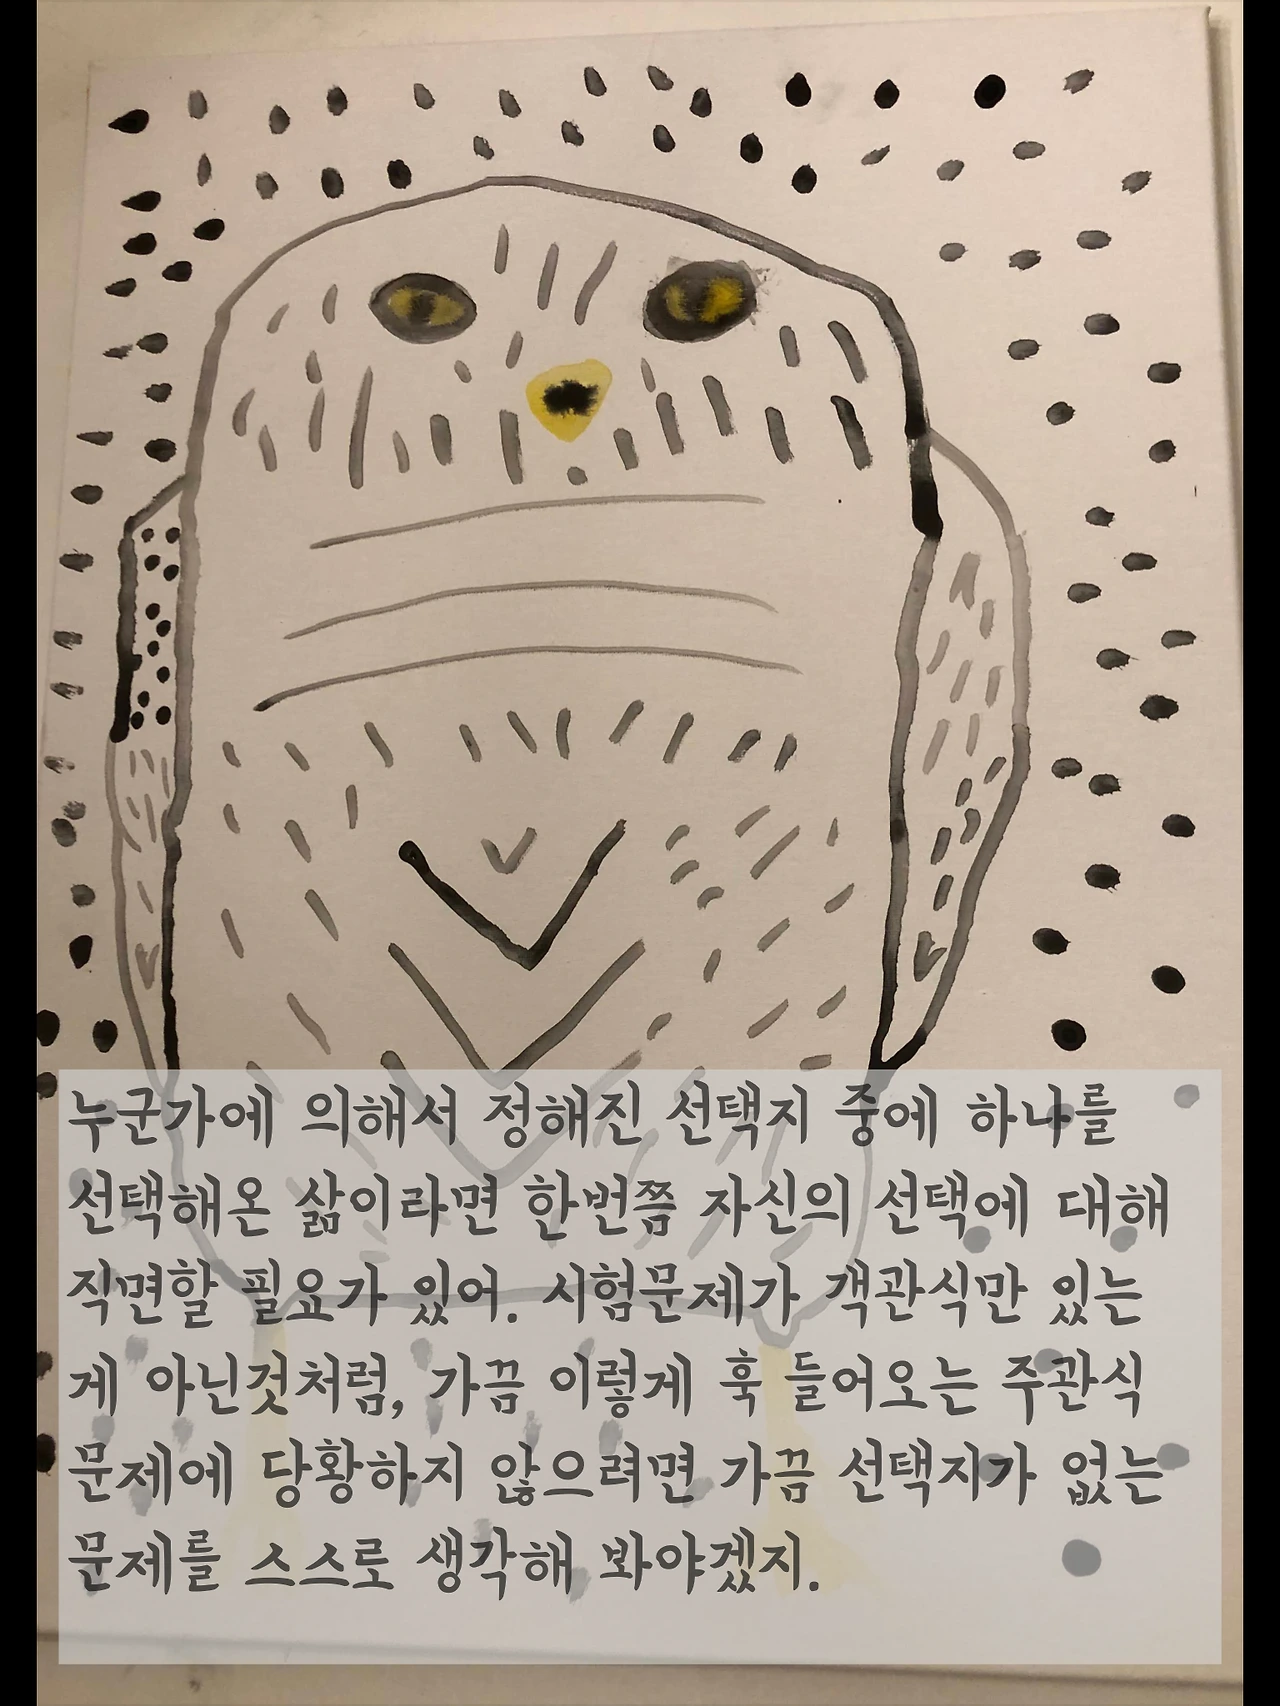 누군가에 의해서 정해진 선택지 중에 하나를
선택해온 삶이라면 한번쯤 자신의 선택에 대해
직면할 필요가 있어. 시험문제가 객관식만 있는
게 아닌것처럼, 가끔 이렇게 훅 들어오는 주관식
문제에 당황하지 않으려면 가끔 선택지가 없는
문제를 스스로 생각해 봐야겠지.